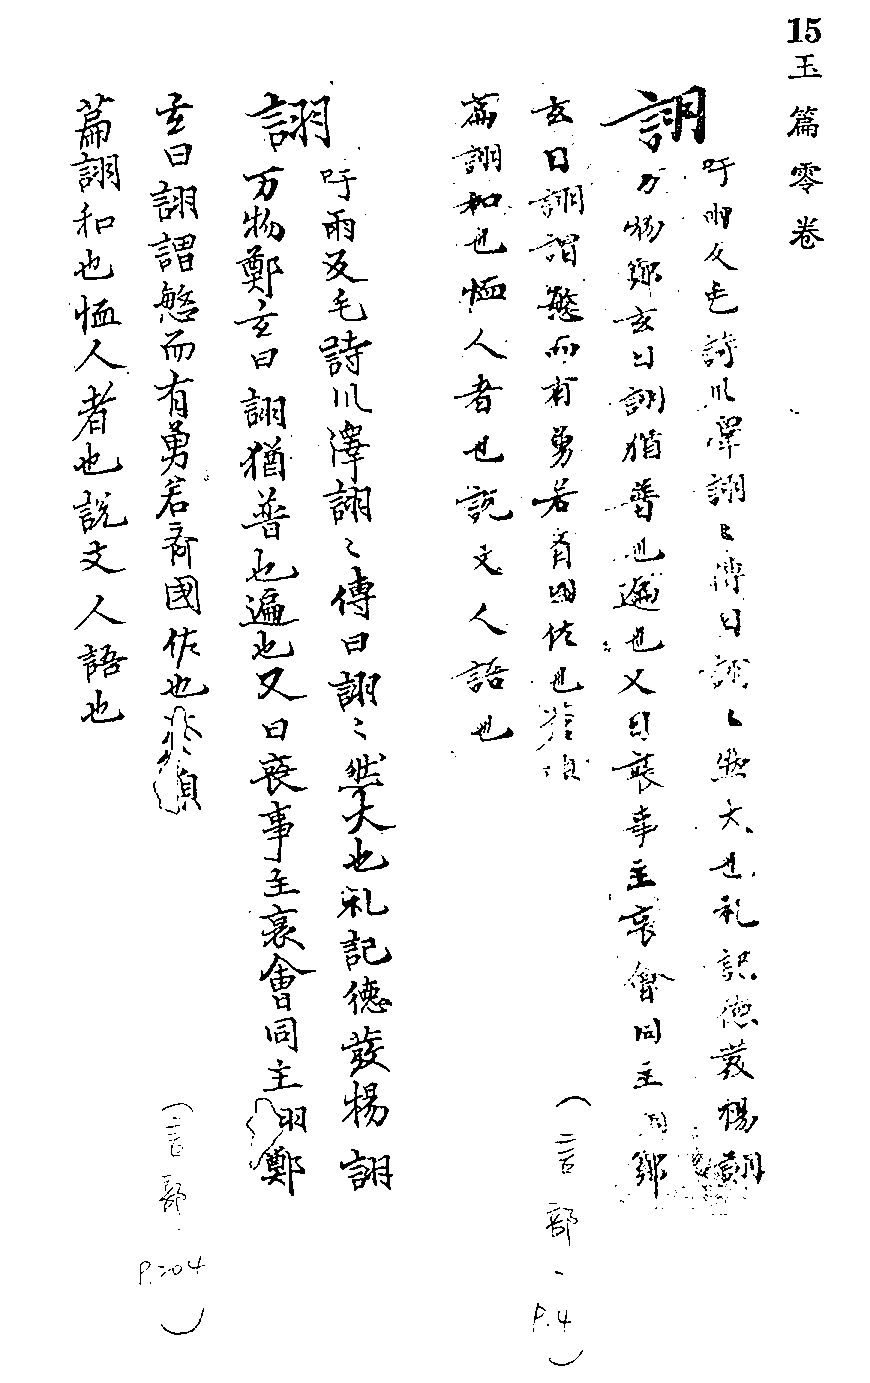 15
玉篇零卷
詡
吁羽反毛詩川澤詡〻傳曰詡〻然大也礼記德發楊詡
万物鄭玄曰詡猶普也遍也又曰喪事主哀會同主詡鄭
玄曰詡謂慜而有勇若齊國佐也
篇詡和也恤人者也說文人語也
(言部、P.4)
詡
吁雨反毛詩川澤詡〻傳曰詡〻然大也礼記德發楊詡
万物鄭玄曰詡猶普也遍也又曰喪事主哀會同主羽鄭
玄曰詡謂慜而有勇若齊國佐也
篇詡和也恤人者也說文人語也
(言部、P.204)